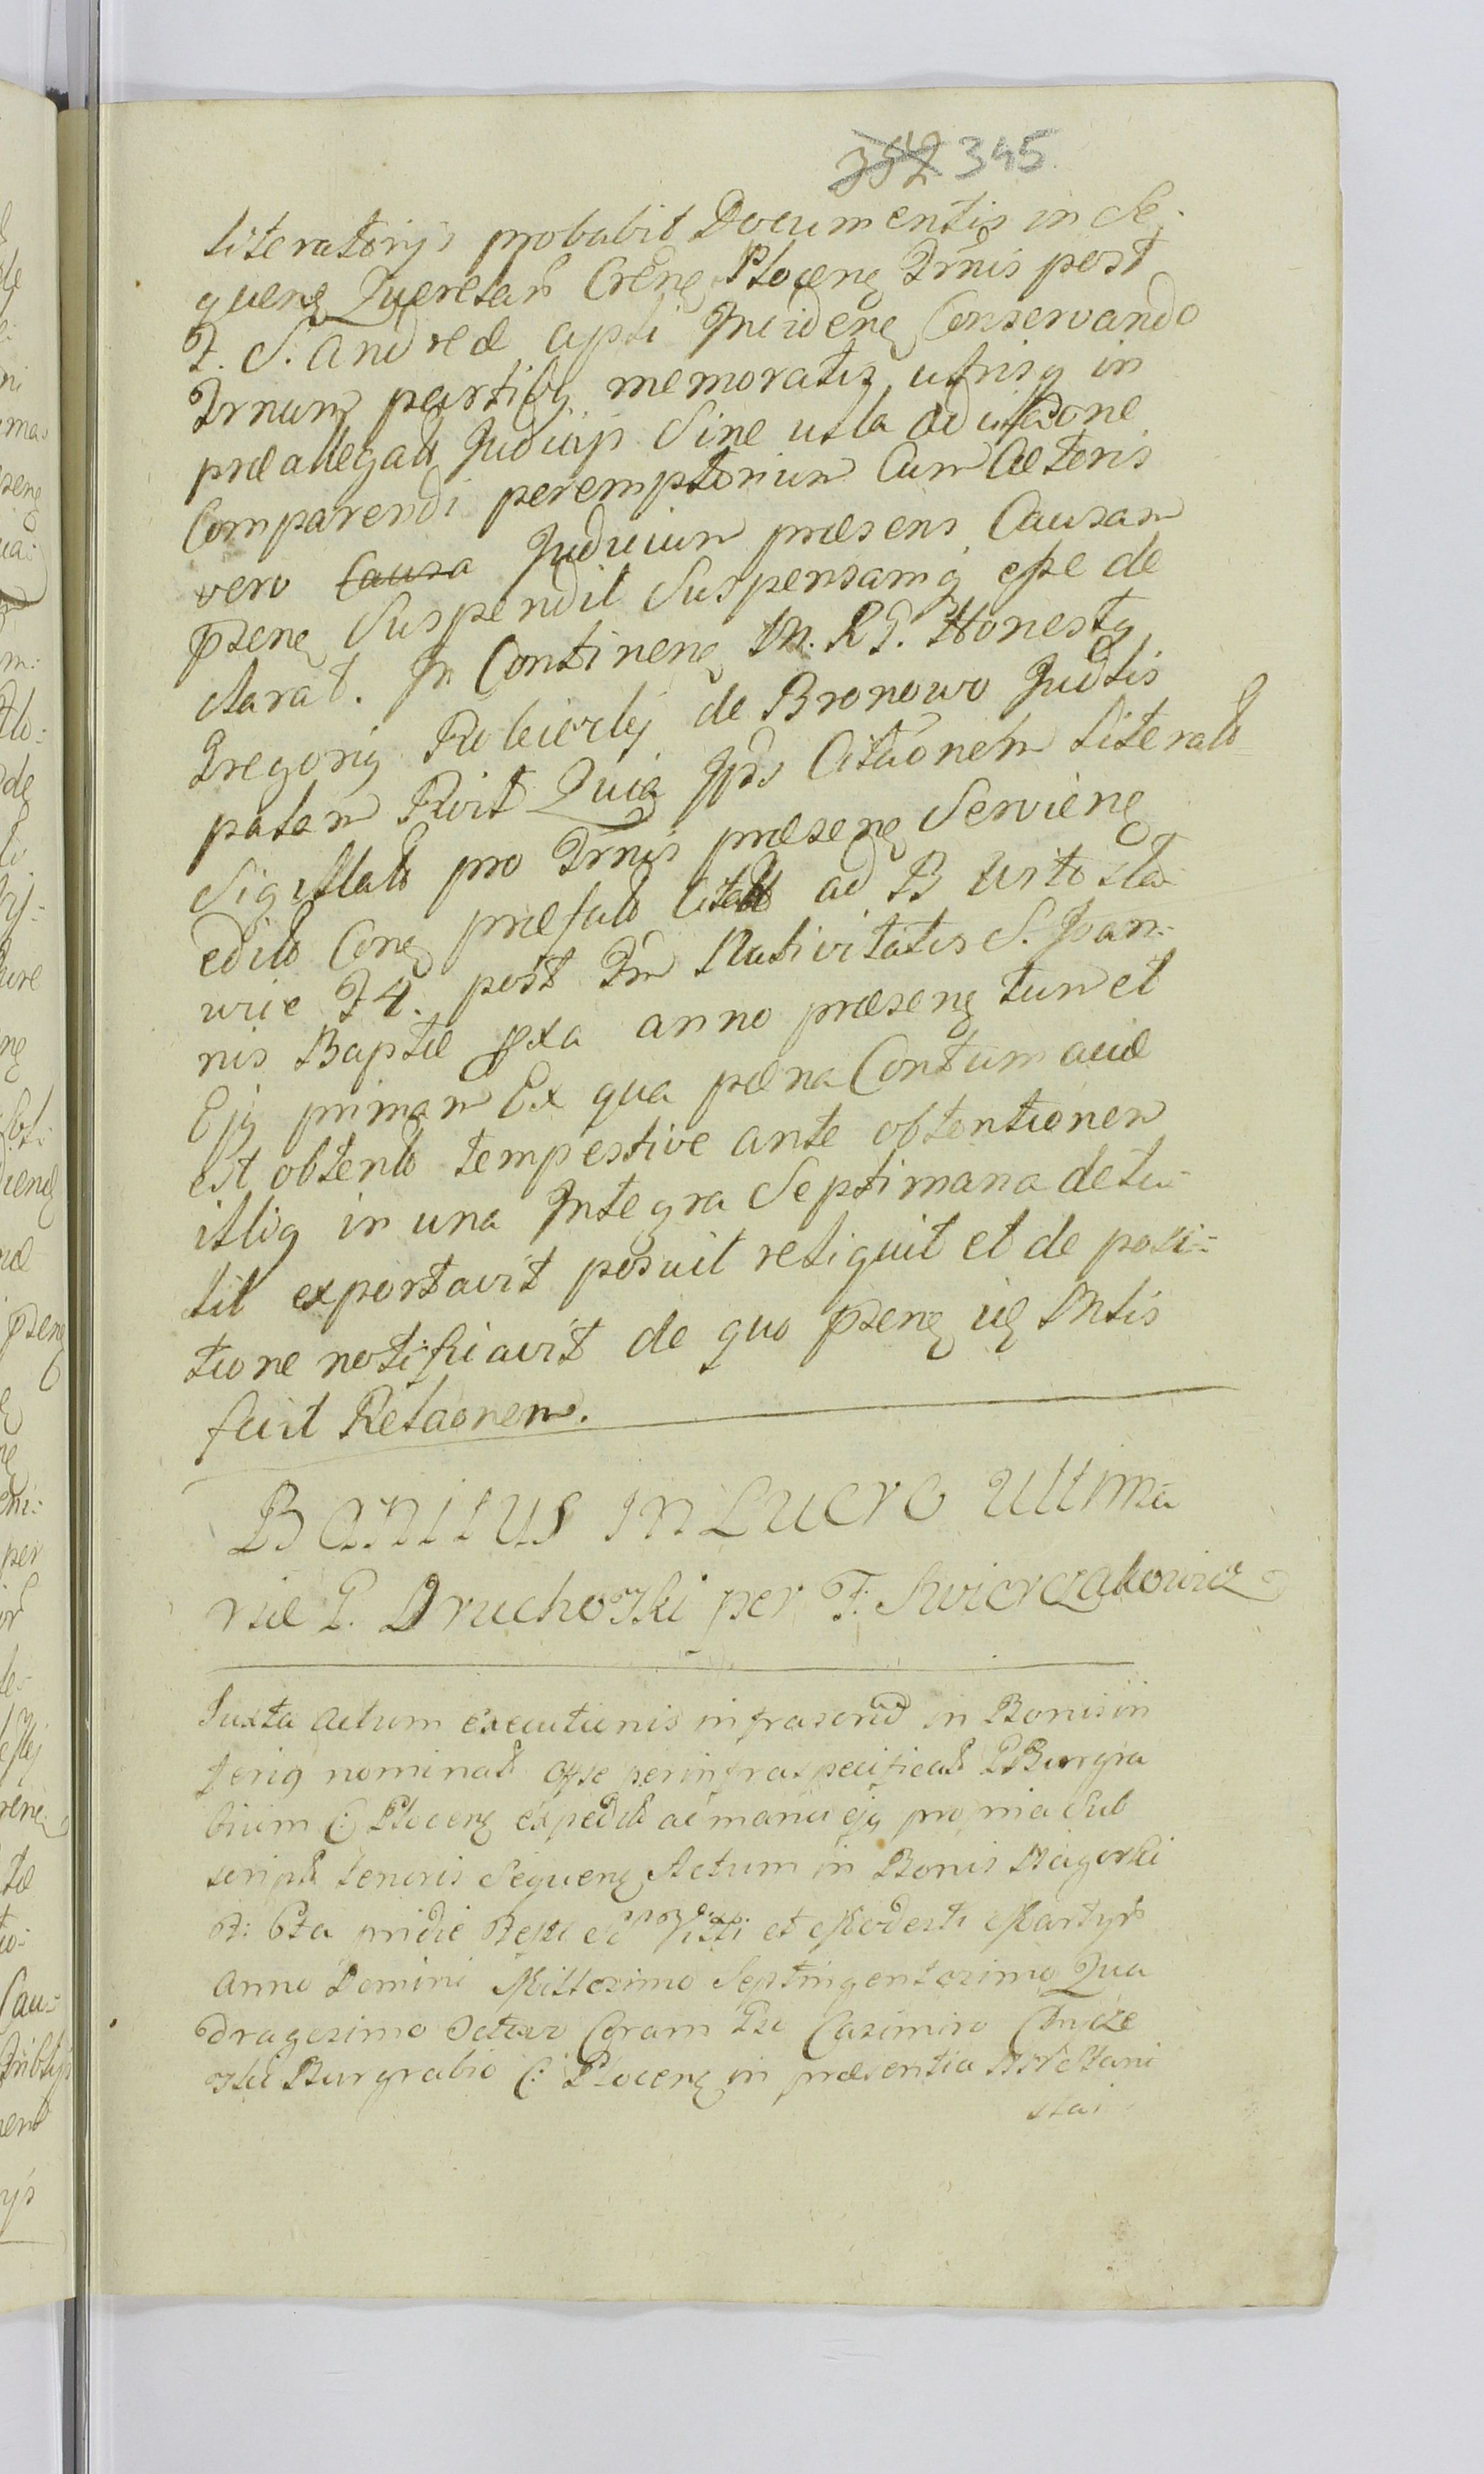 352 345
literatorijs probabit Documentis in Se:
quenꝫ Querelar Crenꝫ Plocenꝫ Trnis post
F. S. Andreæ Apti Incidenꝫ Conservando
Trnum partibꝫ memoratis utrisq in
præallegatt Judicijs Sine ulla adcitaone
Comparendi peremptorium Cum Cæteris
vero Causa Judicium præsens Causam
pzenꝫ Suspendit Suspensamq esse de
clarat. In Continenꝫ M. RG. Honestꝫ
Gregoriꝫ de Bronowo Judtis
palam Rvit Quia Citaonem literalt
Sigillatt pro Trnis præsenꝫ Servienꝫ
edilt Conꝫ præfatt Citatt ad B Witosla
wice F 4. post Tm Nativitatis S. Joan:
nis Baptæ pxa anno præsenꝫ tum et
Ejꝫ primam Ex qua pæna Contumaciæ
est obtentt tempestive ante obtentionem
illiꝫ in una Integra Septimana detu:
lit exportavit posuit reliquit et de posi:
tione notificavit de quo pzenꝫ Mtis
fecit Relaonem.
Banitus in Lucro Ultima
riæ G. Druchowski per F. Swierczakowicz
Juxta Actum executionis infrascrid in Bonis in
feriꝫ nominatt Offse per infraspecificatt GBurgra
bium C: Plocenꝫ expeditt ac manu ejꝫ propria Sub
script tenoris Sequenꝫ Actum in Bonis Nagorki
F: 6ta pridie Festi Viti et Modesti Martyr
Anno Domini Millesimo Septingentesimo Qua
dragesimo Octavo Coram Gso Casimiro
Burgrabio C: Plocenꝫ in præsentia
slai